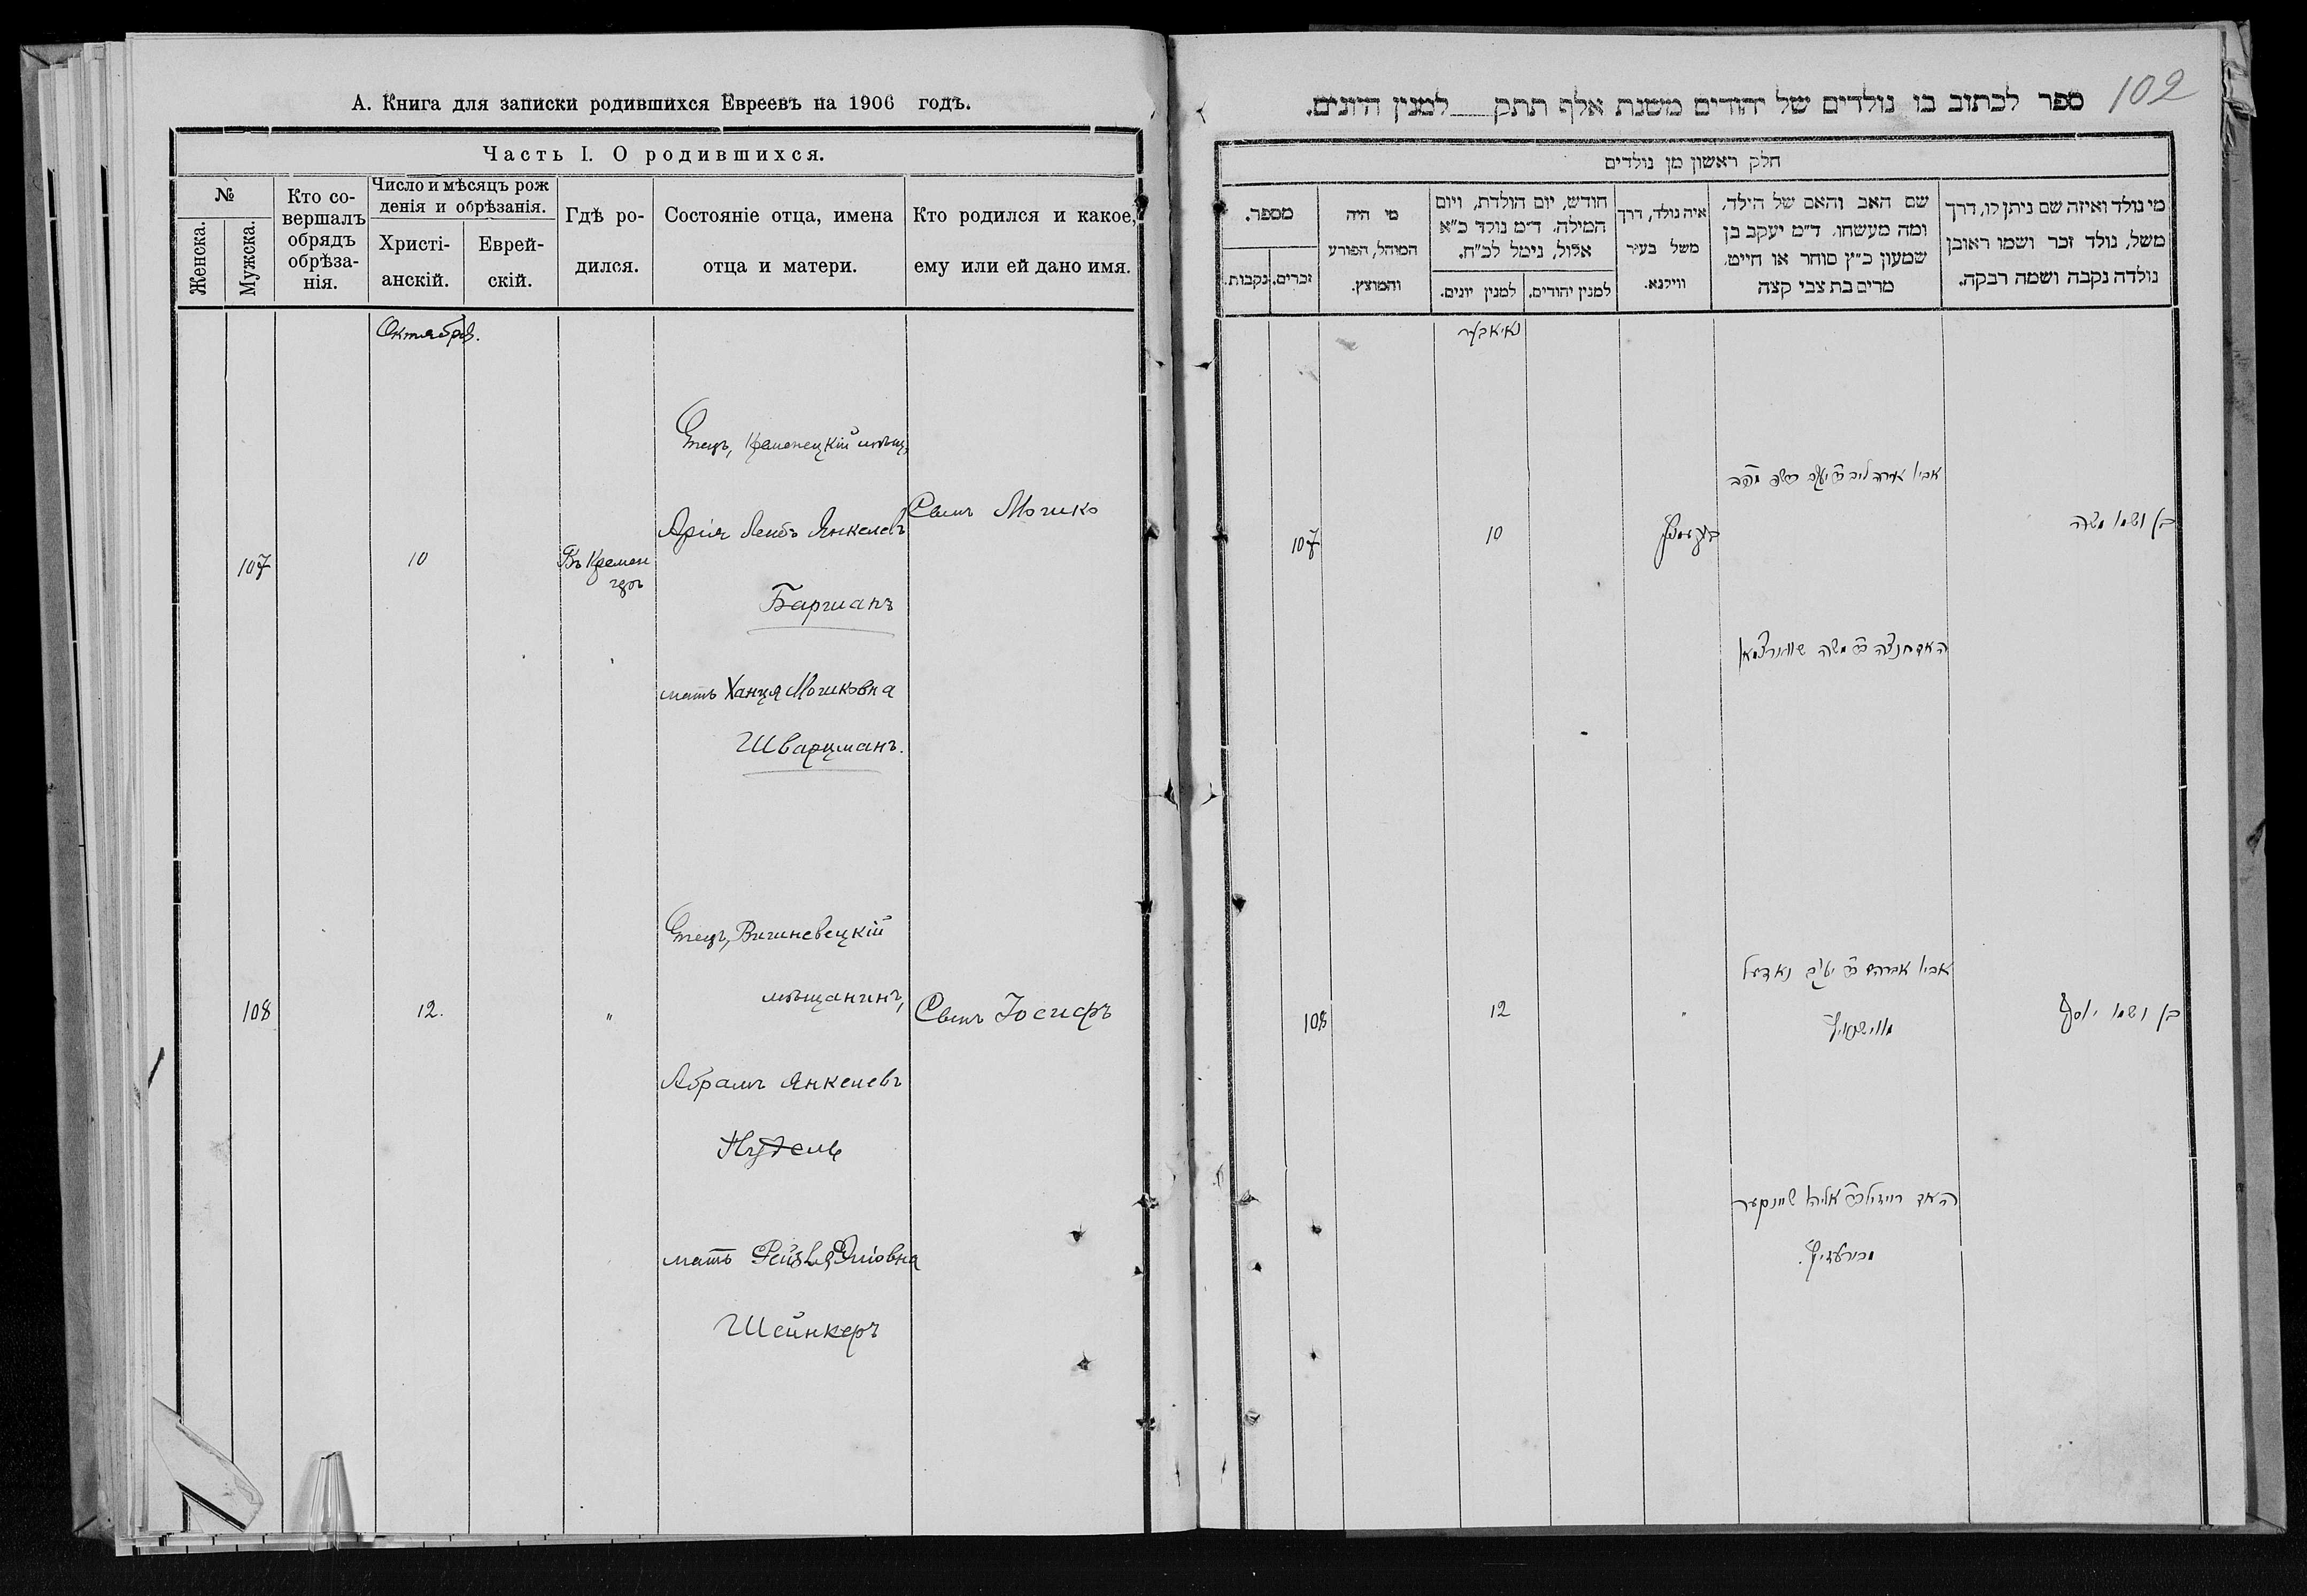 А. Книга для записки родившихся Евреевъ на 1906 годъ.
Часть I. О родившихся.
№
Женска.
Мужска.
Кто со-
вершалъ
обрядъ
обрѣза-
нія.
Число и мѣсяцъ рож
денія и обрѣзанія.
Христі-
анскій.
Еврей-
скій.
Гдѣ ро-
дился.
Состояніе отца, имена
отца и матери.
Кто родился и какое,
ему или ей дано имя.
Октябрь.
Отецъ, Кременецкій мѣщ.
Арія Лейбъ Янкелевъ
Сынъ Мошко
107
10
Въ Кремен
цѣ
Баршанъ
мать Ханця Мошковна
Шварцманъ.
Отецъ, Вишневецкій
мѣщанинъ,
108
12.
"
Сынъ Іосифъ
Абрамъ Янкелевъ
Нудель
мать Рейзля Эліовна
Шейнкеръ
102
ספר לכתוב בו נולדים של יהודים משנת אלף תתק למנין היונים.
חלק ראשון מן נולדים
מי נולד ואיזה שם ניתן לו, דרך
משל, נולד זכר ושמו ראובן
נולדה נקבה ושמה רבקה.
שם האב והאם של הילד,
ומה מעשהו, ד״מ יעקב בן
שמעון כ״ץ סוחר או חייט,
מרים בת צבי קצה
איה נולד, דרך
משל בעיר
ווילנא.
חודש, יום הולדת, ויום
המילה, ד״מ נולד כ״א
אלול, נימל לכ״ח.
למנין יהודים.
למנין יונים.
מי היה
המוהל, הפורע
והמוצץ.
מספר.
זכרים.
נקבות.
בן ושמו משה
10
107
האם חנצה משה שווארצמאן
אביו אברהם נאדעל
בן ושמו יוסף
"
12
108
האם רייזל אליהו שיינקער